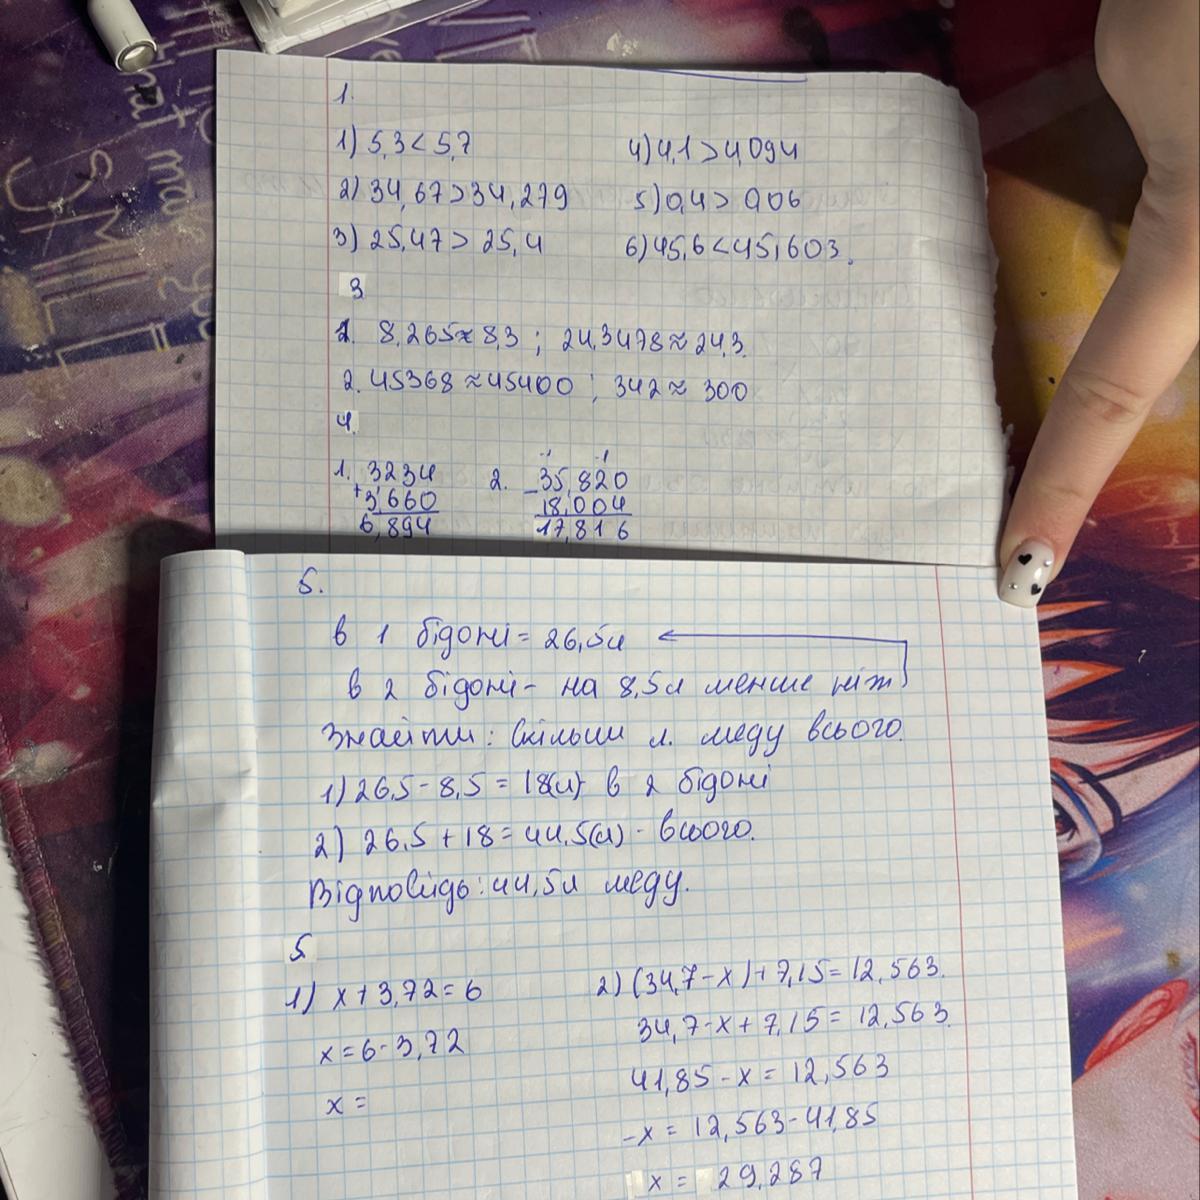 1.
1) 5,3 < 5,7
2) 34,67 > 34,279
3) 25,47 > 25,4
4) 4,1 > 4,094
5) 0,4 > 0,06
6) 45,6 < 45,603.
3
1. 8,265 ≈ 8,3 ; 24,3478 ≈ 24,3.
2. 45368 ≈ 45400 ; 342 ≈ 300
4.
1. 3234
+ 3,660
6,894
2. - 35,820
18,004
17,816
5.
в 1 бідоні = 26,5л
в 2 бідоні - на 8,5л менше ніж
Знайти: Скільки л. меду всього.
1) 26,5 - 8,5 = 18(л) в 2 бідоні
2) 26,5 + 18 = 44,5(л) - всього.
Відповідь: 44,5л меду.
5
1) x + 3,72 = 6
x = 6 - 3,72
x =
2) (34,7 - x) + 7,15 = 12,563.
34,7 - x + 7,15 = 12,563.
41,85 - x = 12,563
-x = 12,563 - 41,85
x = 29,287